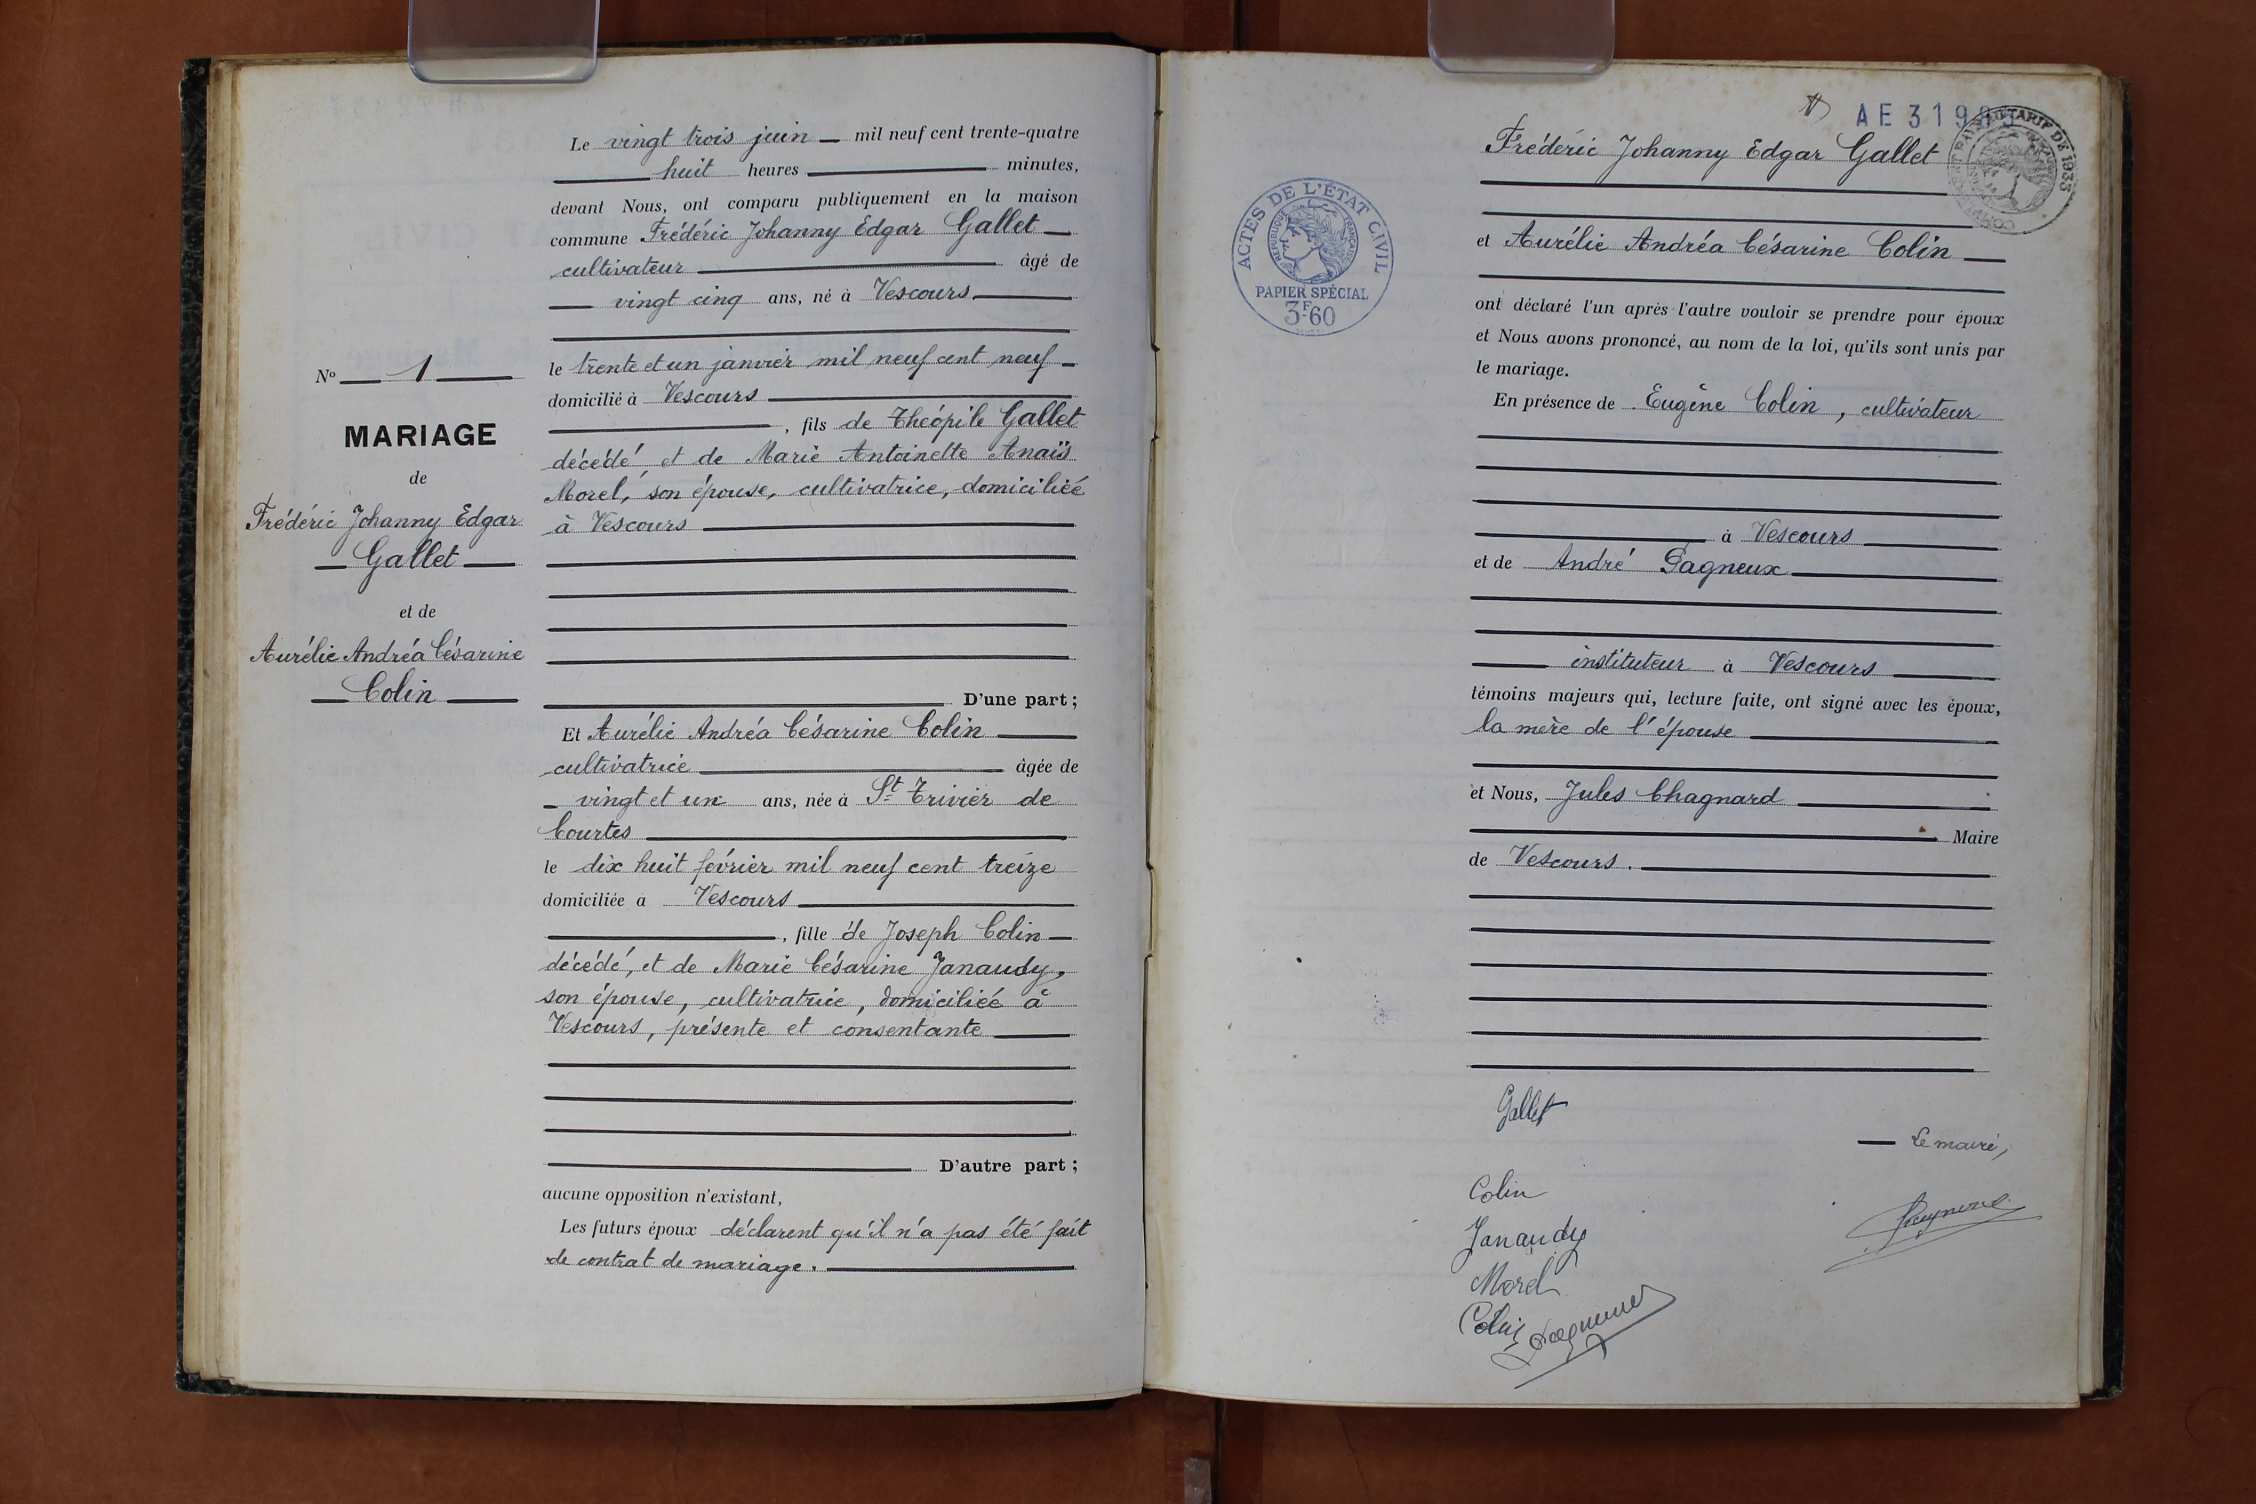 Le vingt trois juin mil neuf cent trente-quatre
huit heures minutes,
devant Nous, ont comparu publiquement en la maison
commune Frédéric Johanny Edgar Gallet
cultivateur âgé de
vingt cinq ans, né à Vescours
le trente et un janvier mil neuf cent neuf
domicilié à Vescours
, fils de Théopile Gallet
décédé et de Marie Antoinette Anaïs
Morel, son épouse, cultivatrice, domiciliée
à Vescours
D'une part ;
Et Aurélie Andréa Césarine Colin
cultivatrice âgée de
vingt et un ans, née à St Trivier de
Courtes
le dix huit février mil neuf cent treize
domiciliée a Vescours
, fille de Joseph Colin
décédé, et de Marie Césarine Janaudy,
son épouse, cultivatrice, domiciliée à
Vescours, présente et consentante
D'autre part ;
aucune opposition n'existant,
Les futurs époux déclarent qu'il n'a pas été fait
de contrat de mariage.
No 1
MARIAGE
de
Frédéric Johanny Edgar
Gallet
et de
Aurélie Andréa Césarine
Colin
ACTES DE L'ÉTAT CIVIL
RÉPUBLIQUE FRANÇAISE
PAPIER SPÉCIAL
3F60
AE 319
TARIF DE 1933
Frédéric Johanny Edgar Gallet
et Aurélie Andréa Césarine Colin
ont déclaré l'un après l'autre vouloir se prendre pour époux
et Nous avons prononcé, au nom de la loi, qu'ils sont unis par
le mariage.
En présence de Eugène Colin, cultivateur
à Vescours
et de André Pagneux
instituteur à Vescours
témoins majeurs qui, lecture faite, ont signé avec les époux,
la mère de l'épouse
et Nous, Jules Chagnard
Maire
de Vescours.
Gallet
Le maire,
Colin
Janaudy
Morel
Colin